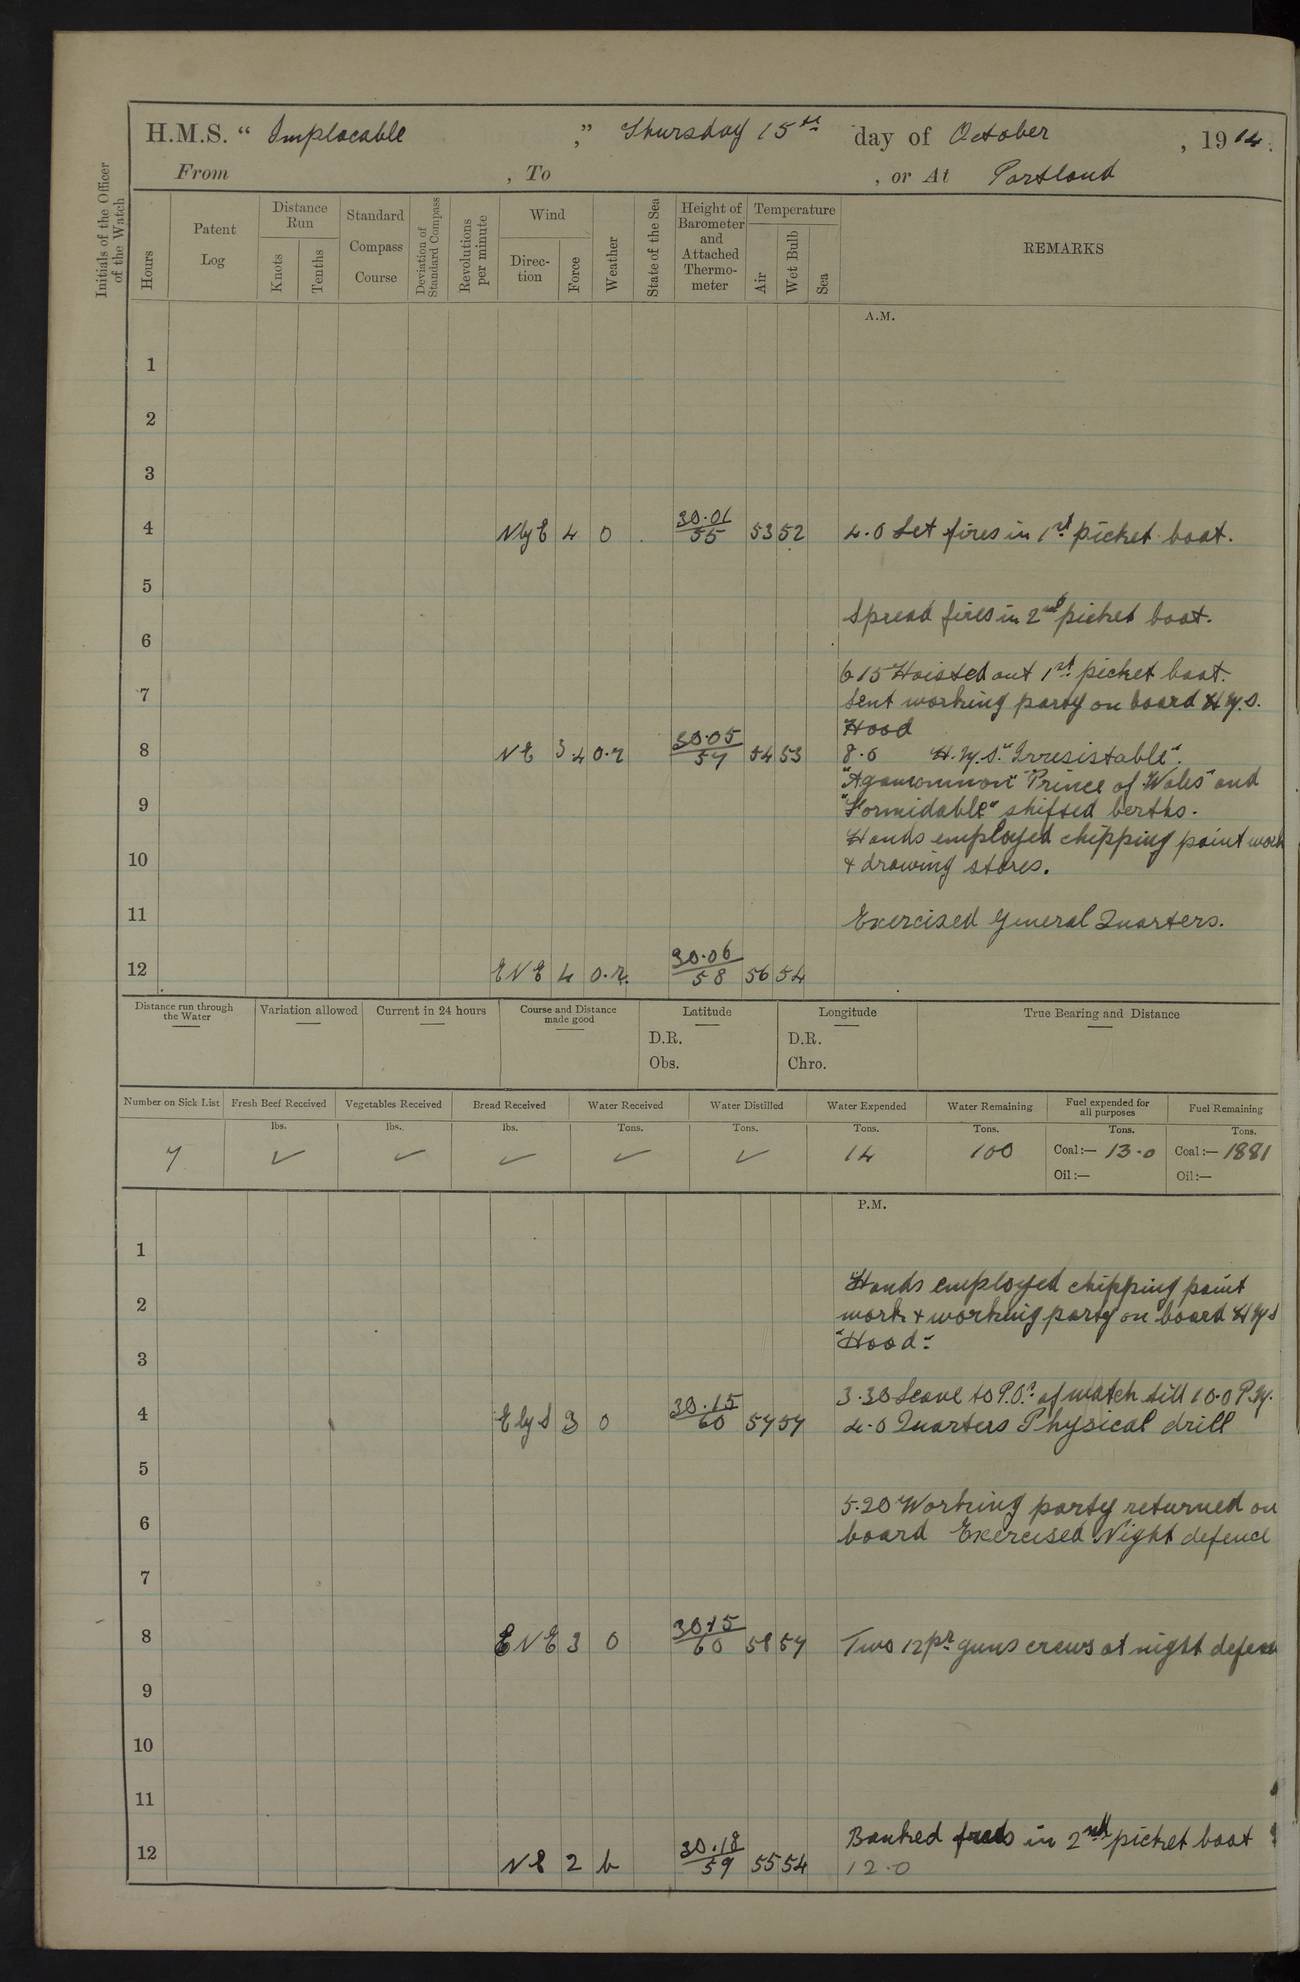 H.M.S. " Implacable ", Thursday 15th day of October, 1914.
From , To , or At Portland
Initials of the Officer of the Watch
Hours
Patent Log
Distance Run
Knots
Tenths
Standard Compass Course
Deviation of Standard Compass
Revolutions per minute
Wind
Direction
Force
Weather
State of the Sea
Height of Barometer and Attached Thermometer
Temperature
Air
Wet Bulb
Sea
REMARKS
A.M.
1
2
3
4 N by E 4 0 30.01/55 53 52 4.0 Let fires in 1st picket boat.
5
Spread fires in 2nd picket boat.
6
6 15 Hoisted out 1st picket boat.
7
Sent working party on board H.M.S.
Hood
8 NE 3.4 0.r 30.05/57 54 53 8.0 H.M.S. "Irresistable".
"Agamemnon" "Prince of Wales" and
9 "Formidable" shifted berths.
Hands employed chipping paint work
10 & drawing stores.
11 Exercised General Quarters.
12 ENE 4 0.r. 30.06/58 56 54
Distance run through the Water
Variation allowed
Current in 24 hours
Course and Distance made good
Latitude
D.R.
Obs.
Longitude
D.R.
Chro.
True Bearing and Distance
Number on Sick List
Fresh Beef Received
Vegetables Received
Bread Received
Water Received
Water Distilled
Water Expended
Water Remaining
Fuel expended for all purposes
Fuel Remaining
lbs. lbs. lbs. Tons. Tons. Tons. Tons. Tons. Tons.
7 ✓ ✓ ✓ ✓ ✓ 14 100 Coal:— 13.0 Coal:— 1881
Oil:— Oil:—
P.M.
1
Hands employed chipping paint
2 work & working party on board H M S
"Hood".
3
3.30 Leave to P.O.s of watch till 10.0 P.M.
4 E by S 3 0 30.15/60 57 57 4.0 Quarters Physical drill
5
5.20 Working party returned on
6 board Exercised Night defence
7
8 ENE 3 0 30.15/60 58 57 Two 12pr guns crews at night defence
9
10
11
Banked fires in 2nd picket boat
12 NE 2 b 30.18/59 55 54 12.0